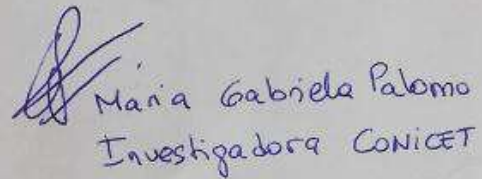 Maria Gabriela Palomo
Investigadora CONICET